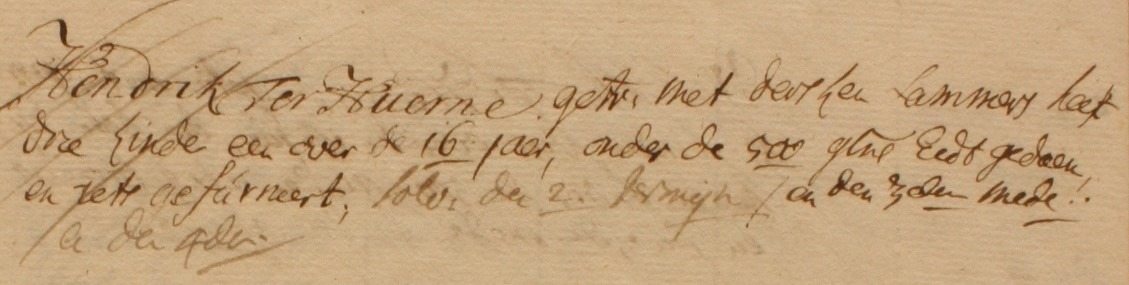 Hendrik Ter Huerne getr. met dersken Lammers heeft
drie kinder een over de 16 jaer, onder de 500 glns Eedt gedaen,
en jets gefurneert, solv. den 2. termijn / en den 3den mede!.
en den 4den.